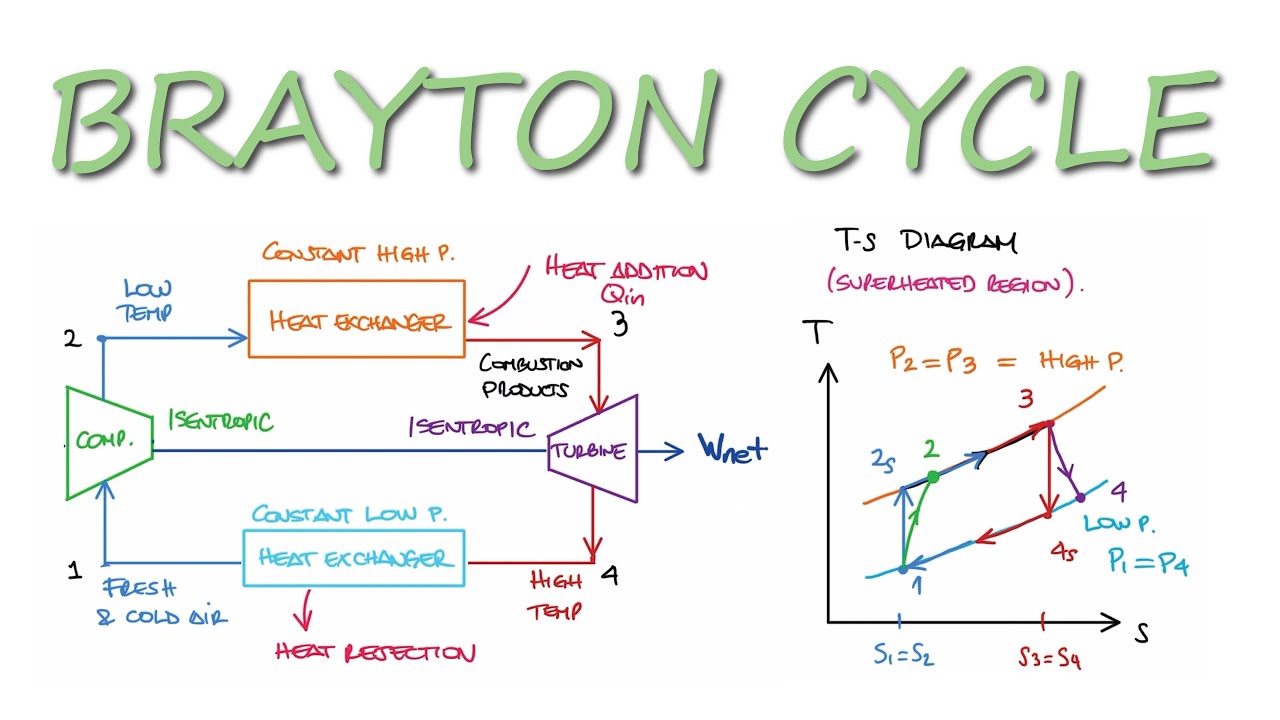 BRAYTON CYCLE
CONSTANT HIGH P.
HEAT ADDITION
Qin
LOW
TEMP
2
HEAT EXCHANGER
3
COMBUSTION
PRODUCTS
ISENTROPIC
ISENTROPIC
COMP.
TURBINE
Wnet
CONSTANT LOW P.
HEAT EXCHANGER
1
4
FRESH
& COLD AIR
HIGH
TEMP
HEAT REJECTION
T-S DIAGRAM
(SUPERHEATED REGION).
T
P2=P3 = HIGH P.
3
2s
2
4
LOW P.
4s
P1=P4
1
S
S1=S2
S3=S4